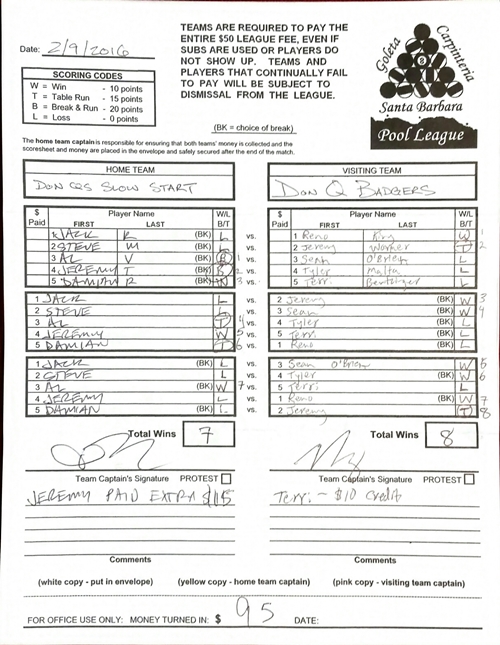 Date: 2/9/2016
TEAMS ARE REQUIRED TO PAY THE
ENTIRE $50 LEAGUE FEE, EVEN IF
SUBS ARE USED OR PLAYERS DO
NOT SHOW UP. TEAMS AND
PLAYERS THAT CONTINUALLY FAIL
TO PAY WILL BE SUBJECT TO
DISMISSAL FROM THE LEAGUE.
(BK = choice of break)
Goleta Carpinteria
Santa Barbara
Pool League
SCORING CODES
W = Win - 10 points
T = Table Run - 15 points
B = Break & Run - 20 points
L = Loss - 0 points
The home team captain is responsible for ensuring that both teams' money is collected and the
scoresheet and money are placed in the envelope and safely secured after the end of the match.
HOME TEAM VISITING TEAM
DON QS SLOW START DON Q BADGERS
$ Paid Player Name FIRST LAST W/L B/T $ Paid Player Name FIRST LAST W/L B/T
1 JACK R (BK) L vs. 1 Reno King W 1
2 STEVE M (BK) L vs. 2 Jeremy Worker T 2
3 AL V (BK) B 1 vs. 3 Sean O'Brien L
4 JEREMY T (BK) B 2 vs. 4 Tyler Malta L
5 DAMIAN R (BK) 3 vs. 5 Terri L
1 JACK L vs. 2 Jeremy (BK) W 3
2 STEVE L vs. 3 Sean (BK) W 4
3 AL T 4 vs. 4 Tyler (BK) L
4 JEREMY W 5 vs. 5 Terri (BK) L
5 DAMIAN T 6 vs. 1 Reno (BK) L
1 JACK (BK) L vs. 3 Sean O'Brien W 5
2 STEVE L vs. 4 Tyler (BK) W 6
3 AL (BK) W 7 vs. 5 Terri L
4 JEREMY L vs. 1 Reno (BK) W 7
5 DAMIAN (BK) L vs. 2 Jeremy (T) 8
Total Wins 7 Total Wins 8
Team Captain's Signature PROTEST Team Captain's Signature PROTEST
JEREMY PAID EXTRA Terri - $10 credit
Comments Comments
(white copy - put in envelope) (yellow copy - home team captain) (pink copy - visiting team captain)
FOR OFFICE USE ONLY: MONEY TURNED IN: $ 95 DATE: